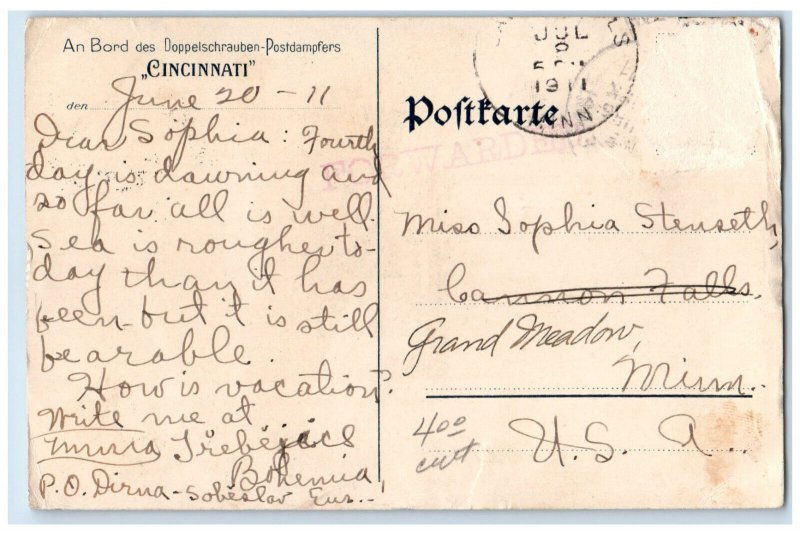 An Bord des Doppelschrauben-Postdampfers
„CINCINNATI"
den June 20 - 11
Dear Sophia: Fourth
day is dawning and
so far all is well.
Sea is rougher to-
day than it has
been but it is still
bearable.
How is vacation?
Write me at
Třebějice
Bohemia,
P.O. Dirna - Soběslav Eur.
JUL
1911
MINN
Postkarte
FORWARDED
Miss Sophia Stenseth,
Cannon Falls,
Grand Meadow,
Minn.
U. S. A.
4.00